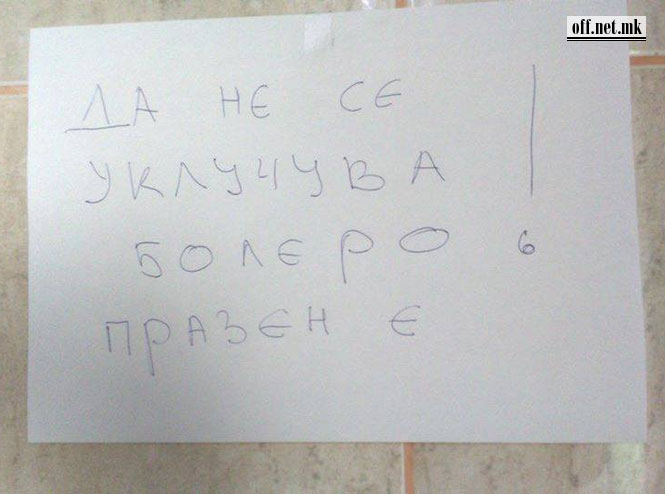 off.net.mk
ДА НЕ СЕ !
УКЛУЧУВА
БОЛЕРО
ПРАЗЕН Е